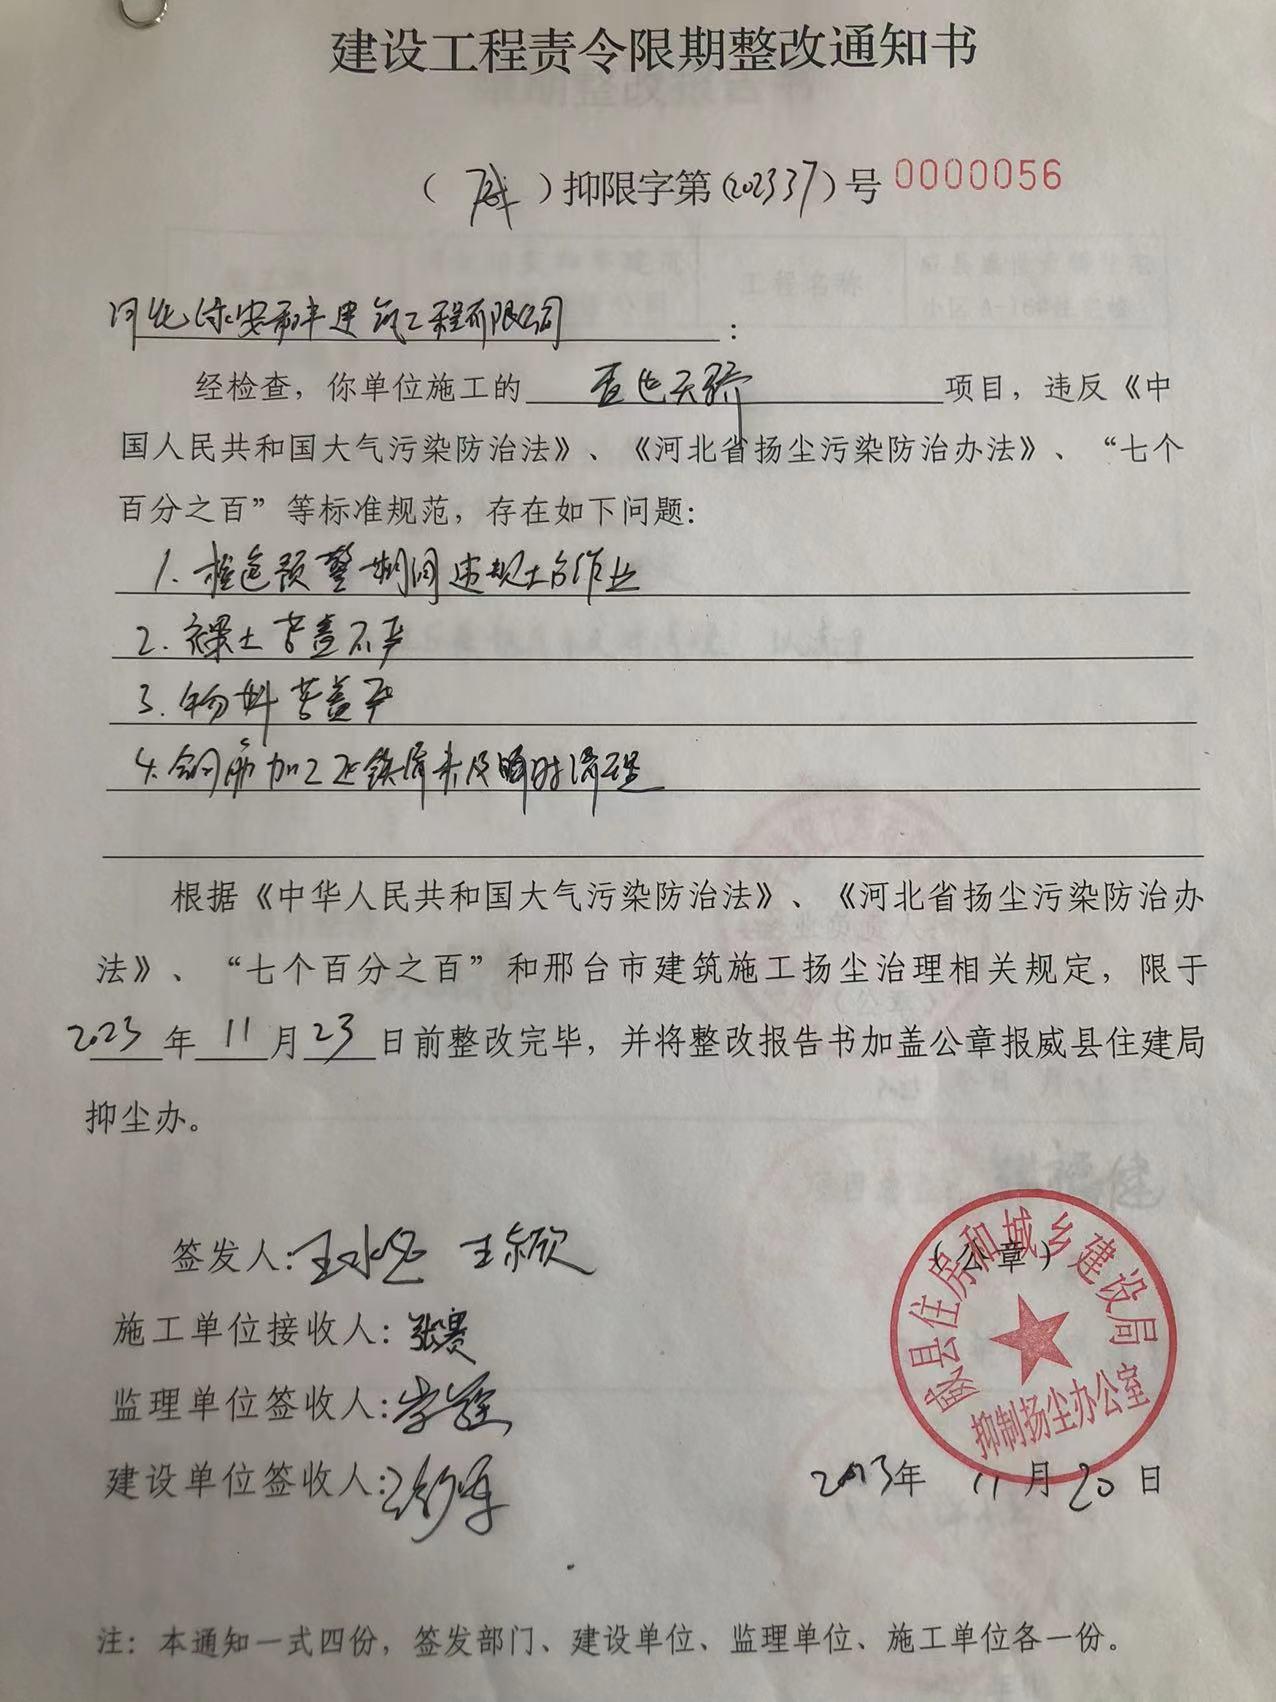 建设工程责令限期整改通知书
（威）抑限字第（202337）号 0000056
河北泳安和丰建筑工程有限公司：
经检查，你单位施工的 天骄 项目，违反《中
国人民共和国大气污染防治法》、《河北省扬尘污染防治办法》、“七个
百分之百”等标准规范，存在如下问题：
1. 橙色预警期间违规土方作业
2. 裸土苫盖不严
3. 物料苫盖严
4. 钢筋加工区铁屑未及时清理
根据《中华人民共和国大气污染防治法》、《河北省扬尘污染防治办
法》、“七个百分之百”和邢台市建筑施工扬尘治理相关规定，限于
2023年11月23日前整改完毕，并将整改报告书加盖公章报威县住建局
抑尘办。
签发人：王 王颖
（公章）
威县住房和城乡建设局
抑制扬尘办公室
施工单位接收人：张赛
监理单位签收人：李
建设单位签收人：
2023年 11月20日
注：本通知一式四份，签发部门、建设单位、监理单位、施工单位各一份。